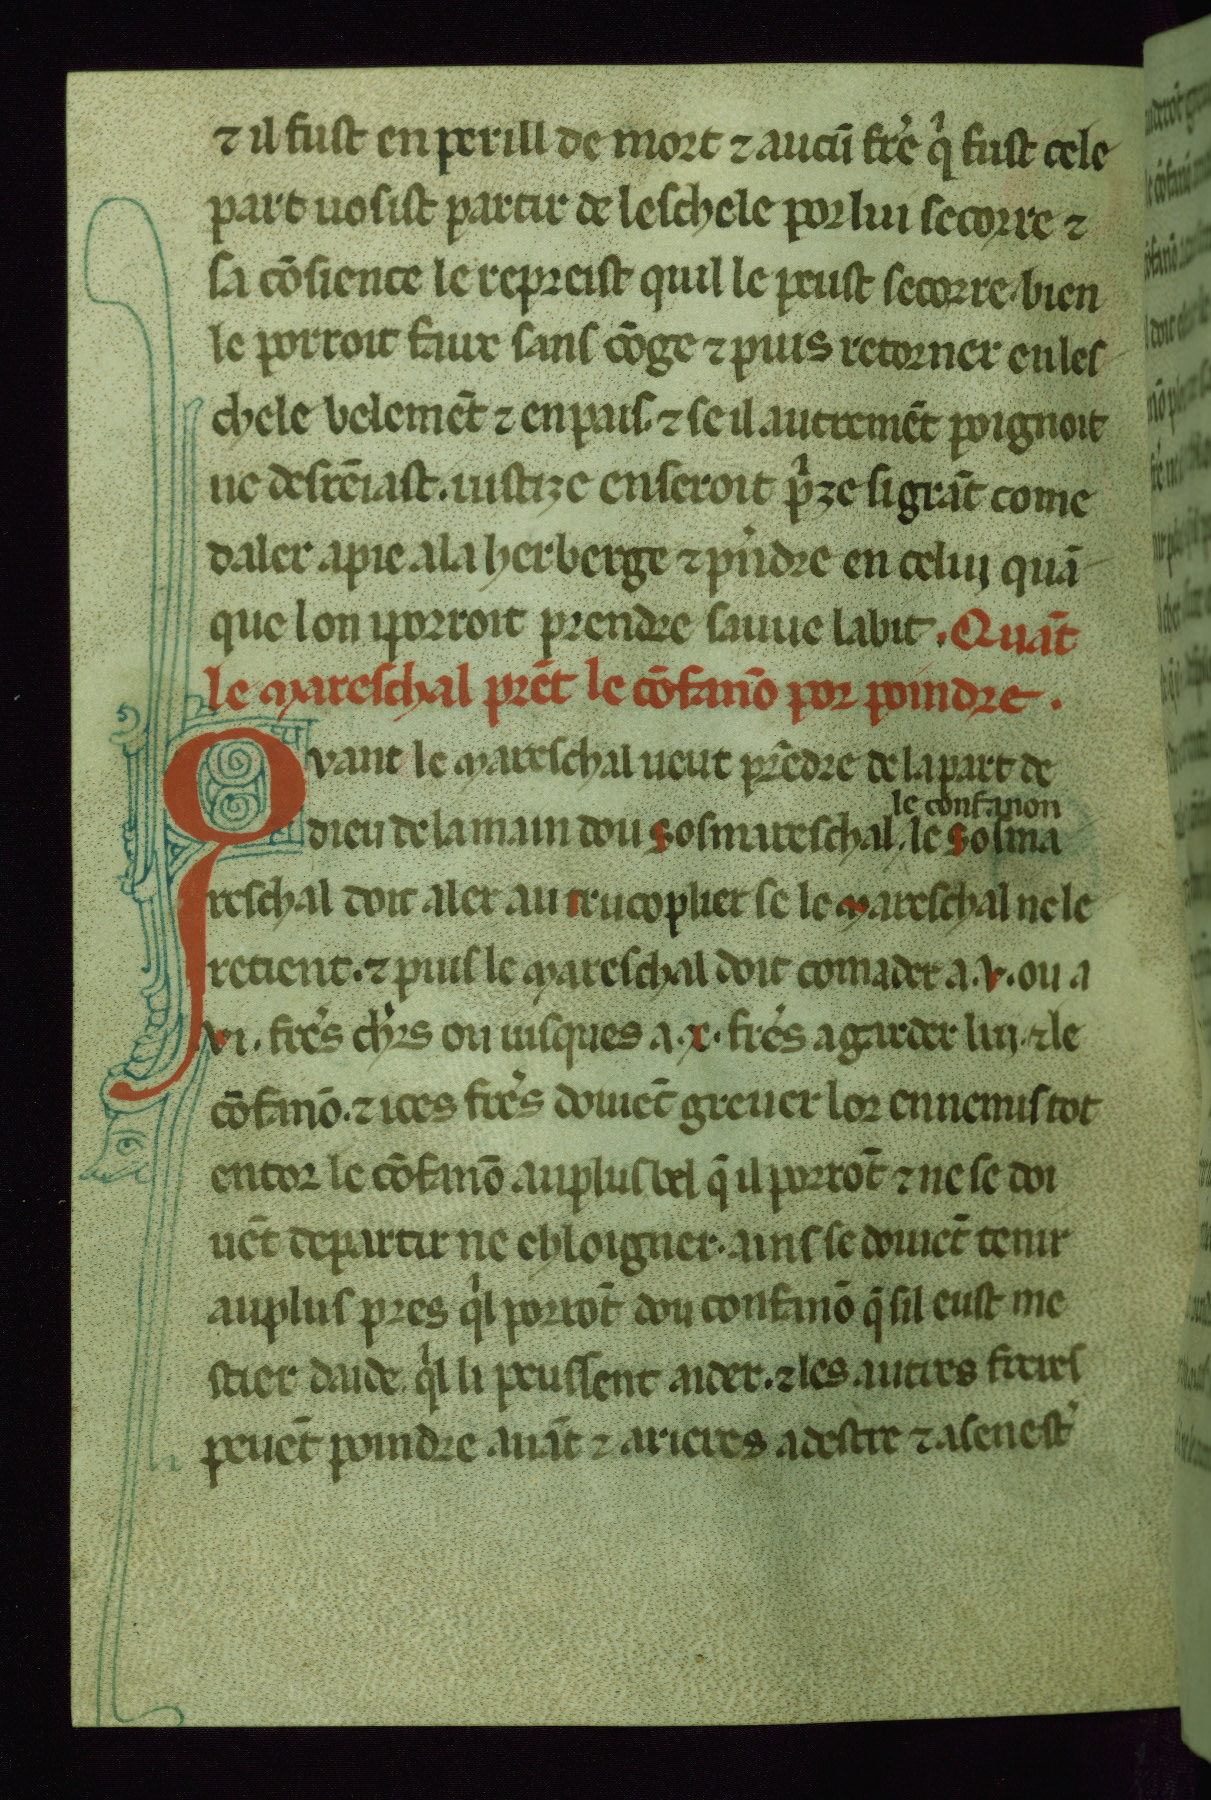 ⁊ il fust en perill de mort ⁊ aucū fre̾ qͥ fust cele
part uosist partir de leschele por lui secorre ⁊
sa cōsience le repreist quil le peust secorre. bien
le porroit faire sans cōge ⁊ puis retorner en les
chele belemēt ⁊ en pais. ⁊ se il autremēt poignoit
ne desrēiast. iustize en seroit pͥze si grāt come
daler a pie a la herberge ⁊ pn̾dre en celui quā
que lon i porroit prendre sauue labit. Quāt
le mareschal prēt le cōfanō por poindre.
Quant le mareschal ueut prēdre de la part de
le confanon
dieu de la main dou sosmareschal. le sosma
reschal doit aler au trucoplier se le mareschal ne le
retient. ⁊ puis le mareschal doit comader a .v. ou a
.vi. fre̾s chr̾s ou iusques a .x. fre̾s a garder lui. ⁊ le
cōfanō. ⁊ ices fre̾s doiuēt greuer lor ennemis tot
entor le cōfanō au plus bel q̄ il porrōt ⁊ ne se doi
uēt departir ne esloigner. ains se doiuēt tenir
au plus pres qͥl porrōt dou confanō q̄ sil eust me
stier daide qͥl li peussent aider. ⁊ les autres freres
peuēt poindre auāt ⁊ arieres a destre ⁊ a senest̾